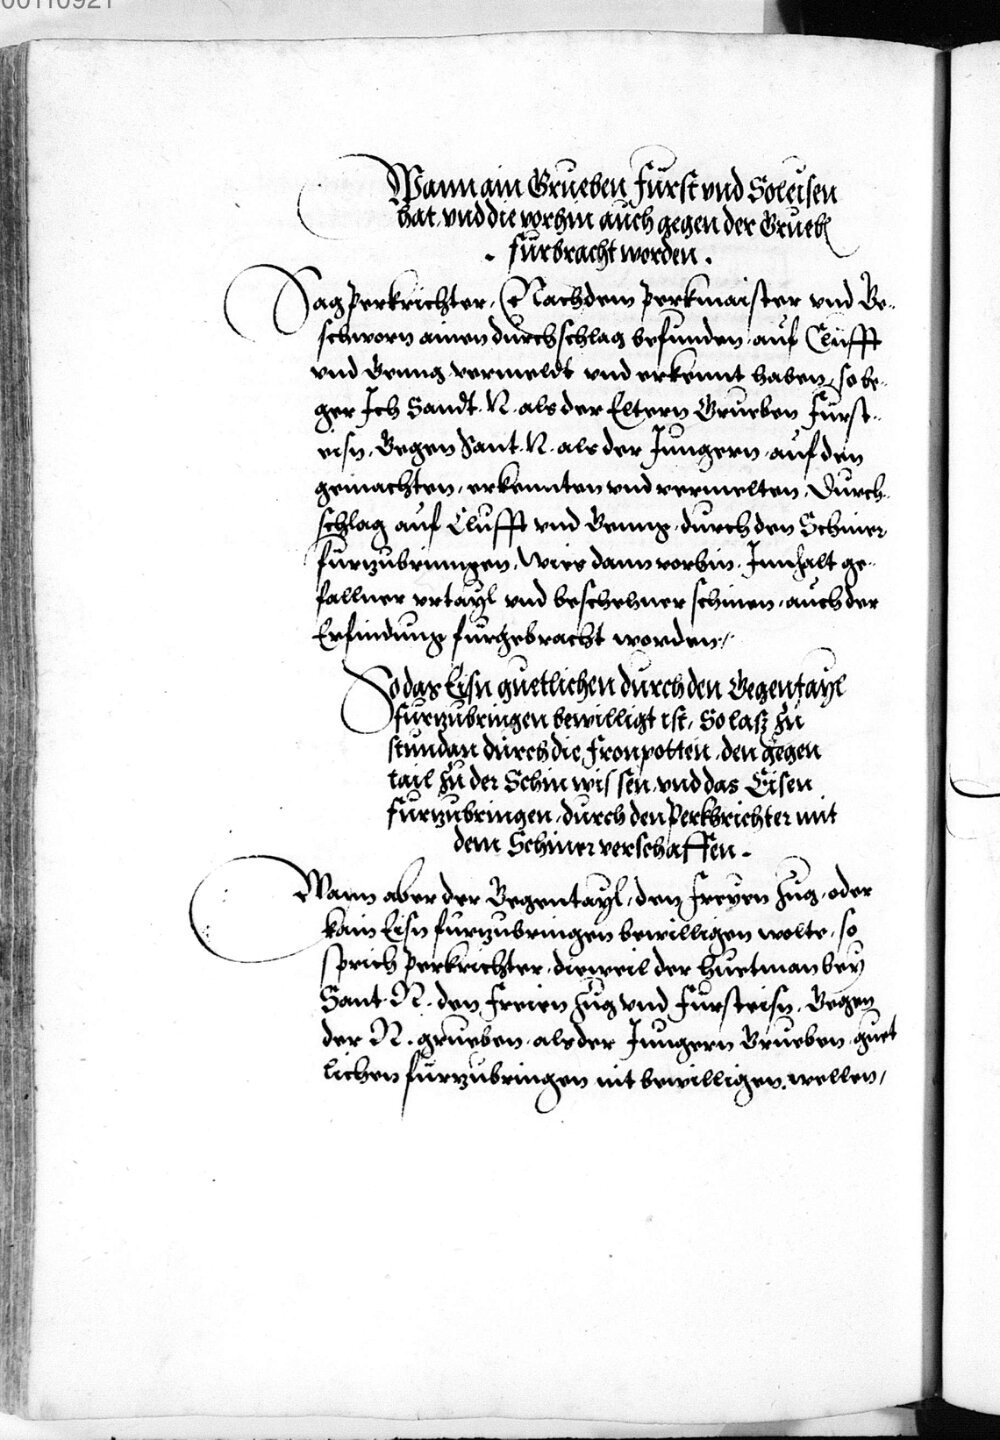 00110921
Wann ain Grueben Furst vnd Soleisen
hat, vnd die vorhin auch gegen der Grueb
furbracht worden.
Sag Perkrichter, Nachdem Perkmaister vnd Ge-
schworn ainen durchschlag befunden, auf Clufft
vnd Genng vermeldt vnd erkennt haben, so be-
ger Ich Sandt N. als der Eltern Grueben Furst-
eisn, Gegen Sant N. als der Jungern, auf den
gemachten, erkennten vnd vermelten, Durch-
schlag auf Clufft vnd Genng, durch den Schiner
furzubringen, Wies dann vorhin, Innhalt ge-
fallner vrtayl vnd beschehner schinen, auch der
Erfindung furgebracht worden,
So das Eisn guetlichen durch den Gegentayl
furzubringen bewilligt ist, So lasz zu
stundan durch die Fronpotten, den gegen
tail zu der Schin wissen, vnd das Eisen
furzubringen, durch den Perkhrichter mit
dem Schiner verschaffen.
Wann aber der Gegentayl, den Freyen zug, oder
kain Eisn furzubringen bewilligen wolte, so
sprich Perkrichter, dieweil der Huetman bey
Sant N. den Freien zug vnd Fursteisn, Gegen
der N. grueben, als der Jungern Grueben, guet
lichen furzubringen nit bewilligen, wellen,